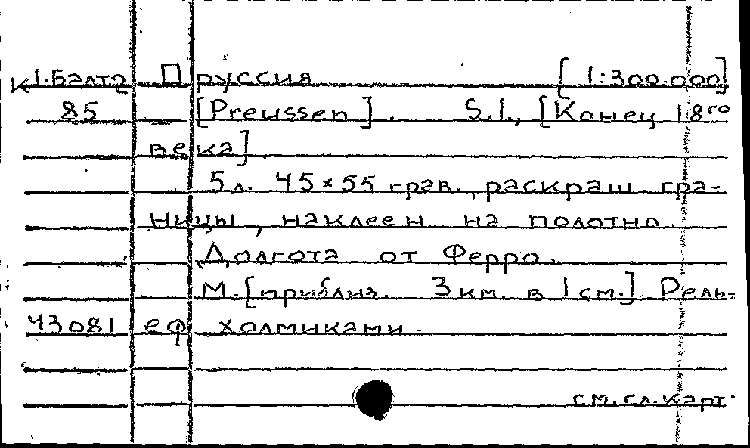 К1.Балта Пруссия [1:300.000]
85 [Preussen]. S.l., [Конец 18го
века]
5 л. 45×55 грав., раскраш. гра-
ницы, наклеен на полотно
Долгота от Ферро.
М.[приблиз. 3 км. в 1 см.] Рель-
43081 еф холмиками.
см.гл.карт.